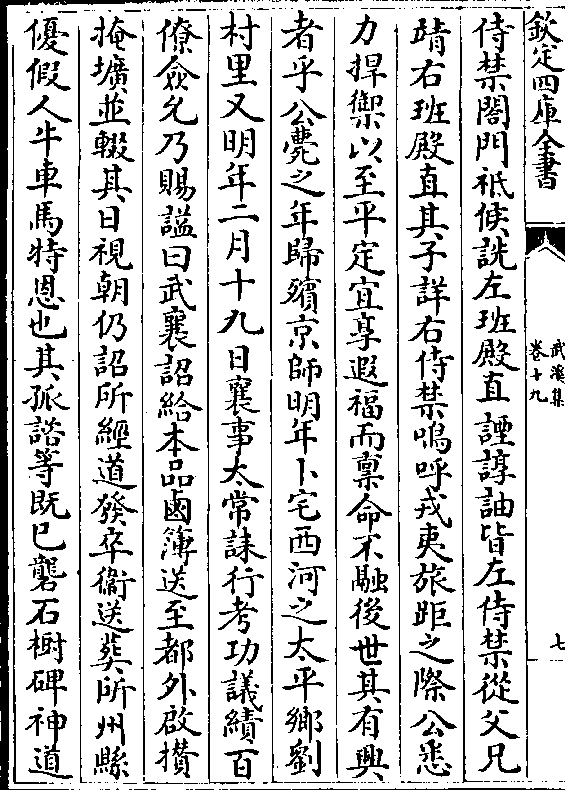 欽定四庫全書
武溪集
卷十九
七
侍禁閤門祗候詵左班殿直諲諄詘皆左侍禁從父兄
靖右班殿直其子詳右侍禁嗚呼戎夷旅距之際公悉
力捍禦以至平定宜享遐福而稟命不融後世其有興
者乎公薨之年歸殯京師明年卜宅西河之太平鄉劉
村里又明年二月十九日襄事太常誄行考功議績百
僚僉允乃賜謚曰武襄詔給本品鹵簿送至都外啟攢
掩壙並輟其日視朝仍詔所經道發卒衞送葬所州縣
優假人牛車馬特恩也其孤諮等既已礱石樹碑神道